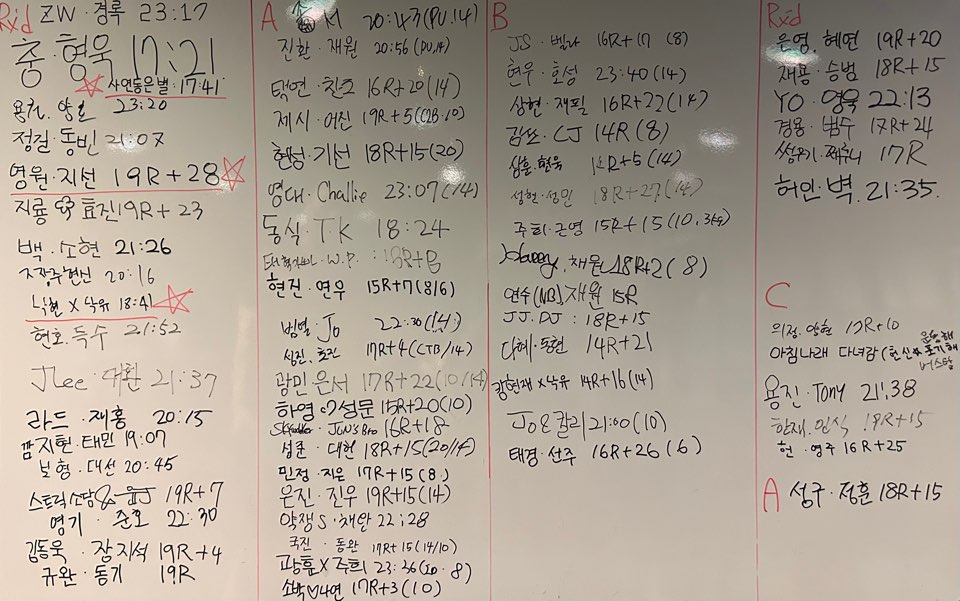 Rxd
ZW·경록 23:17
충·형욱 17:21
사연많은벌:17:41
23:20
정길·동빈 21:07
영원·지선 19R+28
지룡 효진 19R+23
백·소현 21:26
20:16
낙현 X 낙유 18:41
현호·득수 21:52
JLee·대환 21:37
라드·재홍 20:15
깜지현·태민 19:07
보형·대선 20:45
스트릭소담 & 19R+7
영기·준호 22:30
김동욱·장지석 19R+4
규완·동기 19R
A
M 20:43 (PU.14)
진환·재원 20:56 (PU.14)
택연·찬조 16R+20 (14)
제시·어진 19R+5 (CLB.10)
현성·기선 18R+15 (20)
명대·Challie 23:07 (14)
동식·T.K 18:24
W.P. : 18R+8
현진·연우 15R+7 (8/6)
범열·Jo 22:30 (14)
심진·효진 17R+4 (CTB/14)
광민 은서 17R+22 (10/14)
하영 성문 15R+20 (10)
JUN'S Bro 16R+18
섭준·대현 18R+15 (20/14)
민정·지은 17R+15 (8)
은진·진우 19R+15 (14)
약쟁S·채완 22:28
국진·동완 17R+15 (14/10)
광훈 X 주희 23:26 (10·8)
소박♡나연 17R+3 (10)
B
JS·벨라 16R+17 (8)
현우·호성 23:40 (14)
상현·재필 16R+22 (14)
감쪼·CJ 14R (8)
상훈·현욱 R+5 (14)
성현·성민 18R+27 (14)
주희·근영 15R+15 (10.
채원 18R+2 (8)
연수(NB) 재원 15R
JJ.DJ : 18R+15
다혜·동현 14R+21
강현재 X 낙유 14R+16 (14)
Jo & 칼리 21:00 (10)
태경·선주 16R+26 (6)
Rxd
은영·혜연 19R+20
재용·승범 18R+15
YO·영욱 22:13
경용·범수 17R+24
17R
허인·벽 21:35
C
의정·양현 17R+10
아침나래 다녀감
용진·Tony 21:38
한재·민식 19R+15
헌·영주 16R+25
A 성구·정훈 18R+15